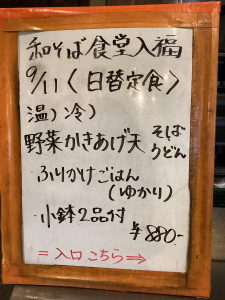 和そば食堂入福
9/11〈日替定食〉
温)冷)
野菜かきあげ天 そば うどん
ふりかけごはん
(ゆかり)
小鉢2品付
¥880-
=入口こちら⇒